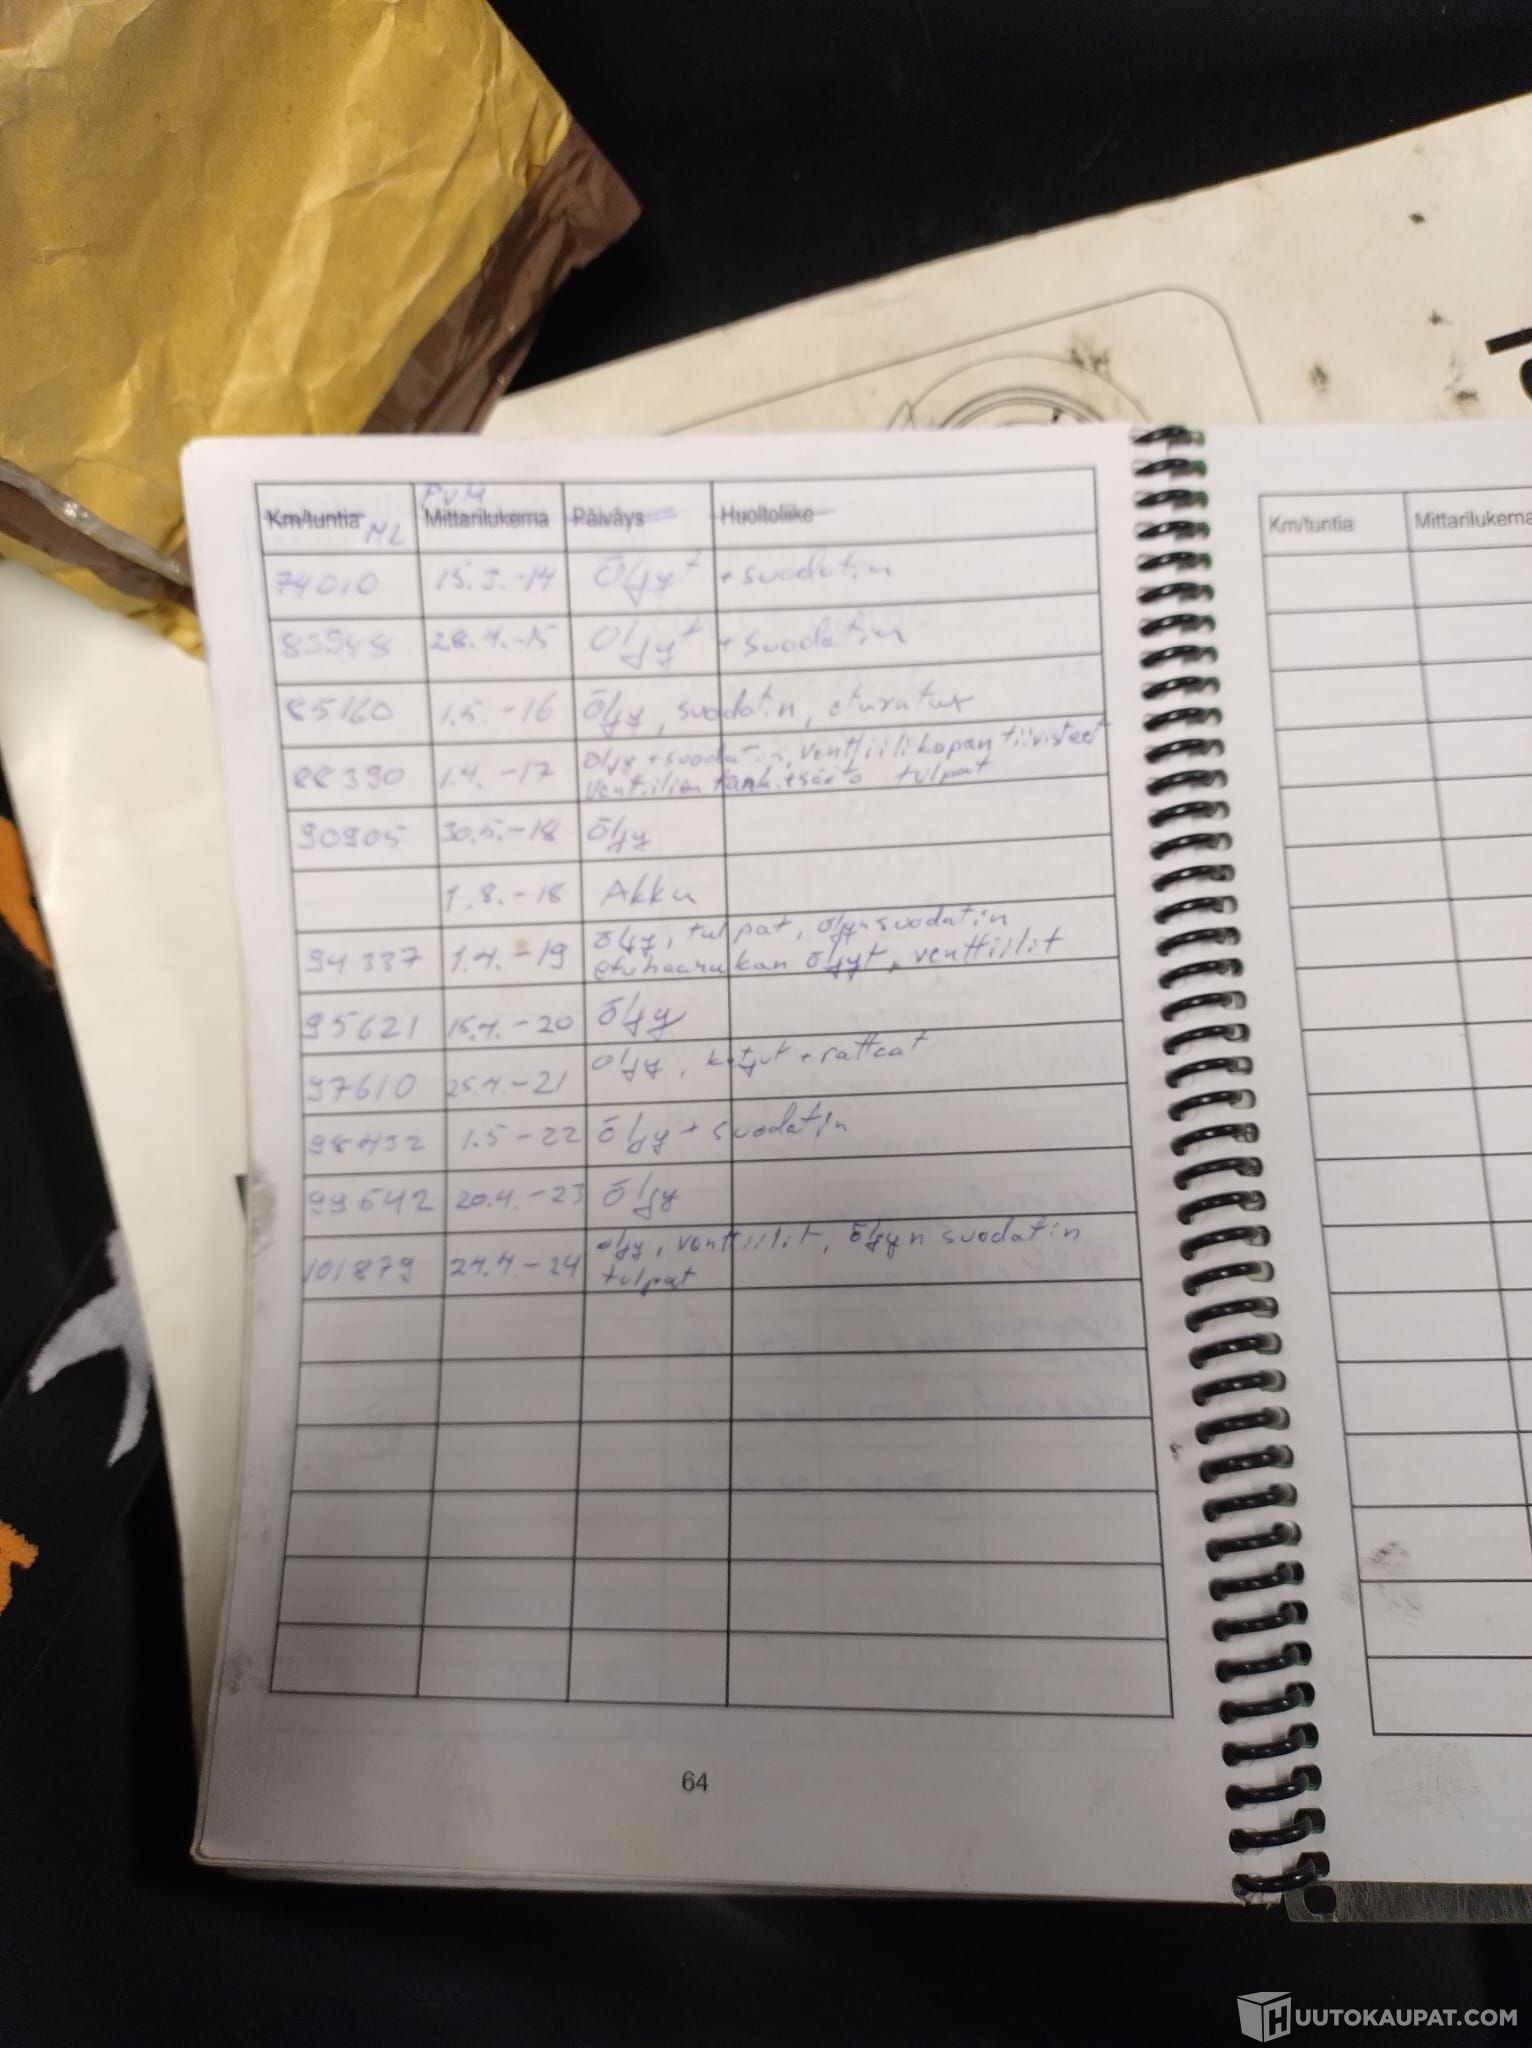 Km/tuntia ML PVM Mittarilukema Päiväys Huoltoliike
74010 15.3.-14 Öljyt + suodatin
83948 28.4.-15 Öljyt + suodatin
85160 1.5.-16 Öljy, suodatin, eturatas
88390 1.4.-17 Öljy + suodatin, venttiilikopan tiivisteet
venttiilien tarkitsäätö tulpat
90905 30.5.-18 Öljy
1.8.-18 Akku
94337 1.4.-19 Öljy, tulpat, öljynsuodatin
etuhaarukan öljyt, venttiilit
95621 15.4.-20 Öljy
97610 25.4.-21 Öljy, ketjut + rattaat
98432 1.5-22 Öljy + suodatin
99642 20.4.-23 Öljy
101879 24.4-24 öljy, venttiilit, öljyn suodatin
tulpat
64
Km/tuntia Mittarilukema
HUUTOKAUPAT.COM